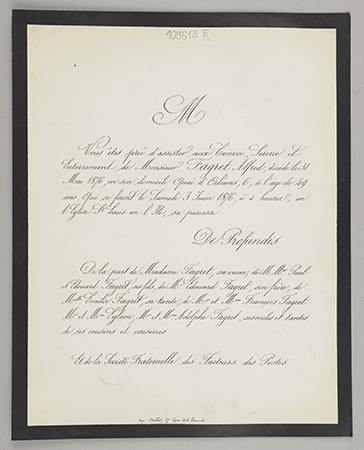 103613
M
Vous êtes prié d'assister aux Convoi, Service et
Enterrement de Monsieur Fagret Alfred, décédé le 31
Mai 1876, en son domicile Quai d'Orléans, 6, à l'âge de 49
ans, Qui se feront le Samedi 3 Juin 1876, à 2 heures, en
l'Eglise St Louis en l'Ile, sa paroisse
De Profundis
De la part de Madame Fagret, sa veuve, de M. Mme Paul
et Edouard Fagret, ses fils, de Mr Edouard Fagret, son frère, de
Melle Emilie Fagret, sa tante, de Mr et Mme François Fagret
Mr et Mme Eglem, Mr et Mme Adolphe Fagret, ses oncles et tantes
de ses cousins et cousines
Et de la Société Fraternelle des Facteurs des Postes.